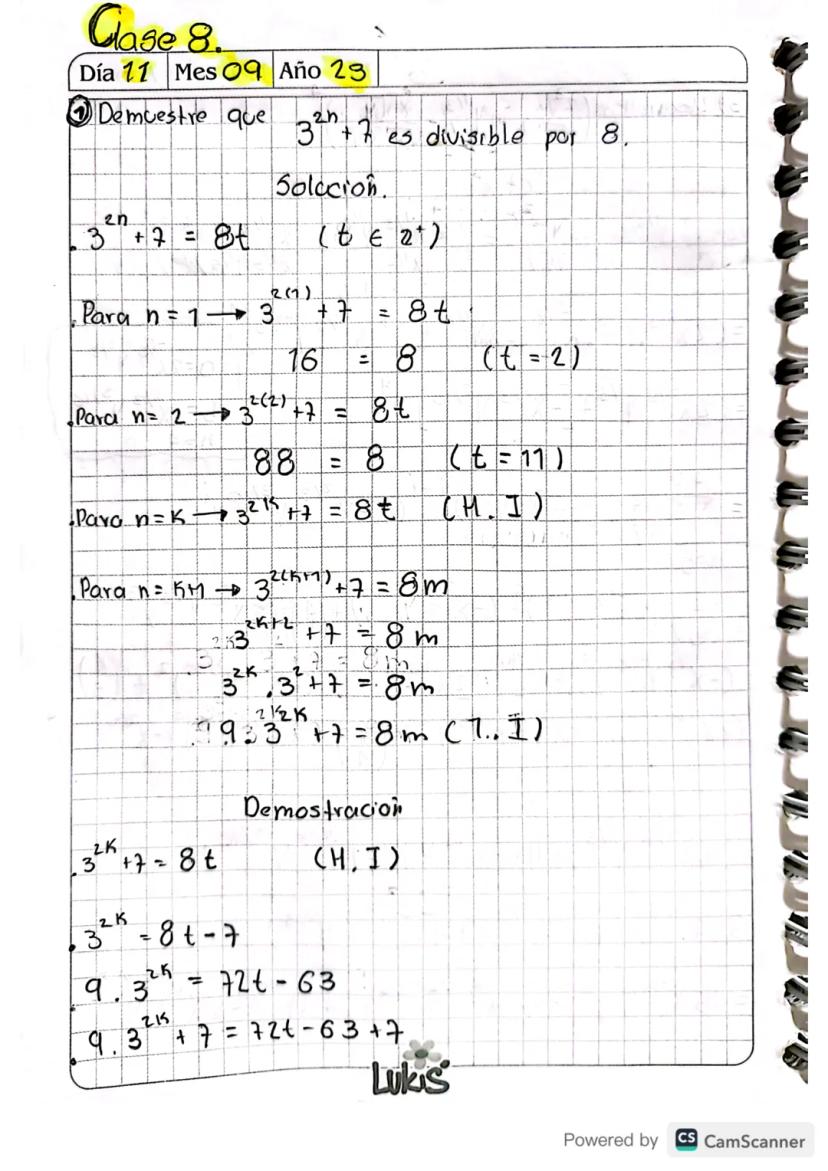 Clase 8.
Día 11 Mes 09 Año 23
① Demuestre que 3^{2n} + 7 es divisible por 8.
Solución.
. 3^{2n} + 7 = 8t (t ∈ z⁺)
. Para n = 1 → 3^{2(1)} + 7 = 8t
16 = 8 (t = 2)
. Para n = 2 → 3^{2(2)} + 7 = 8t
88 = 8 (t = 11)
. Para n = K → 3^{2K} + 7 = 8t (H. I)
. Para n = K+1 → 3^{2(K+1)} + 7 = 8m
3^{2K+2} + 7 = 8m
3^{2K} . 3^{2} + 7 = 8m
9 . 3^{2K} + 7 = 8m (T.. I)
Demostración
. 3^{2K} + 7 = 8t (H. I)
. 3^{2K} = 8t - 7
9 . 3^{2K} = 72t - 63
. 9 . 3^{2K} + 7 = 72t - 63 + 7
Lukis
Powered by CS CamScanner